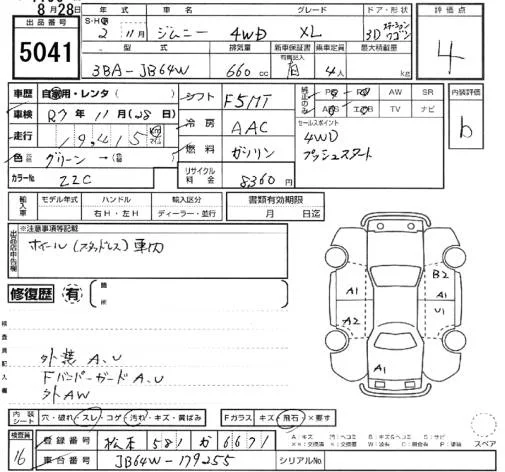 8月28日
出品番号
5041
年式 車名 グレード ドア・形状
S・H・R 2 11月 ジムニー 4WD XL 3D ステーションワゴン
型式 排気量 新車保証書 乗車定員 最大積載量
有無記入
3BA-JB64W 660 cc 有 4人 kg
評価点
4
車歴 自家用・レンタ( )
車検 R7年11月(28日)
走行 19,415
色 グリーン→(色 )
カラーNo 22C
シフト F5MT
冷房 AAC
燃料 ガソリン
リサイクル料金 8360円
純正のみ PS PW AW SR
ABS エアB TV ナビ
セールスポイント
4WD
プッシュスタート
内装評価
b
輸入車 モデル年式 ハンドル 輸入区分
年 右H・左H ディーラー・並行
書類有効期限
月 日迄
出品店申告欄
※注意事項等記載
ホイール(スタッドレス)車内
修復歴 有 箇所
検査員記入欄
外装 A、U
Fバンパーガード A、U
外AW
A1 A2 B2 A1 U1 A1
内装シート 穴・破れ スレ・コゲ 汚れ・キズ・黄ばみ Fガラス キズ・飛石×要す
スペア
検査員 16
登録番号 松本 581 か 6671
車台番号 JB64W-179255 シリアルNo.